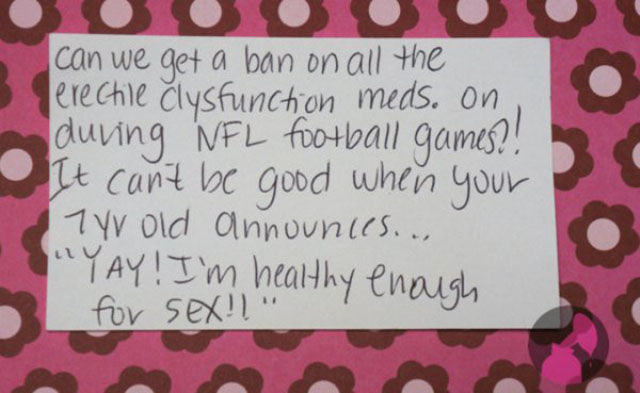 can we get a ban on all the
erectile dysfunction meds. on
during NFL football games?!
It can't be good when your
7yr old announces...
"YAY! I'm healthy enough
for SEX!!"